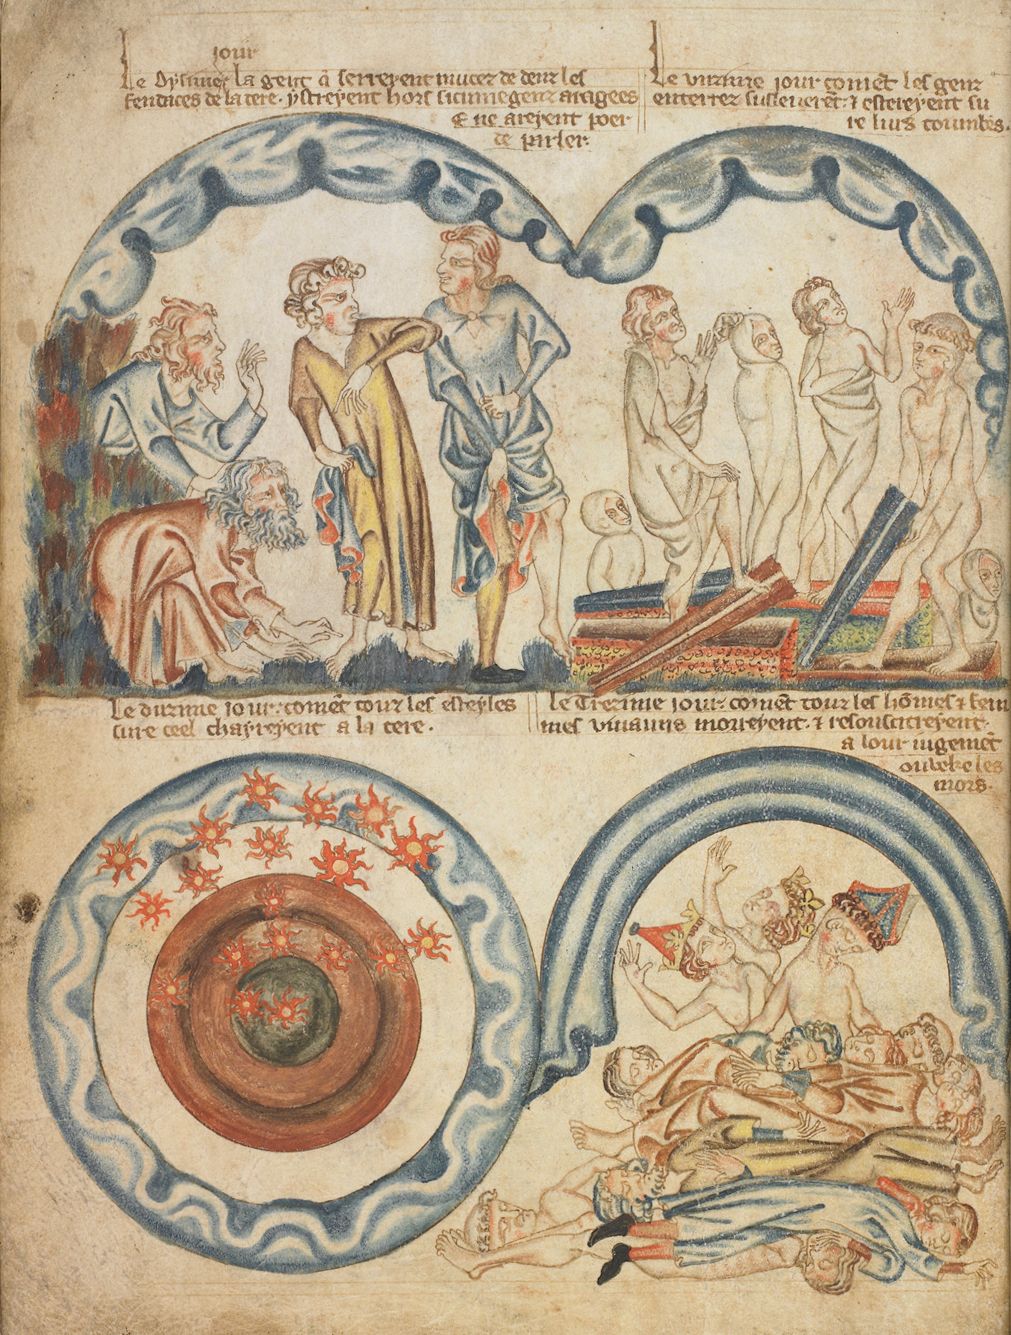 jour
Le dysime la gent q̃ serreyent mucez de denz les
fendaces de la tere. ystreyent hors sicume genz aragees
E ne areyent poer
de parler.
Le unzime jour coment̃ les genz
enterrez susleveret̃: ⁊ estereyent su
re lius toumbes.
Le duzime jour: coment̃ touz les esteyles
sure ceel chayreyent a la tere.
Le Trezime jour: coment̃ touz les hõmes ⁊ fem
mes vivauns morreyent. ⁊ resouscitreyent.
a lour iugement̃
ovekes les
mors.